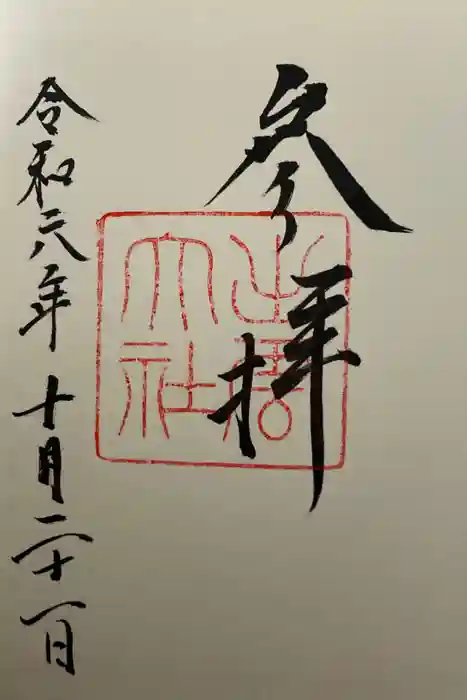 参拝
出雲大社
令和六年十月二十一日